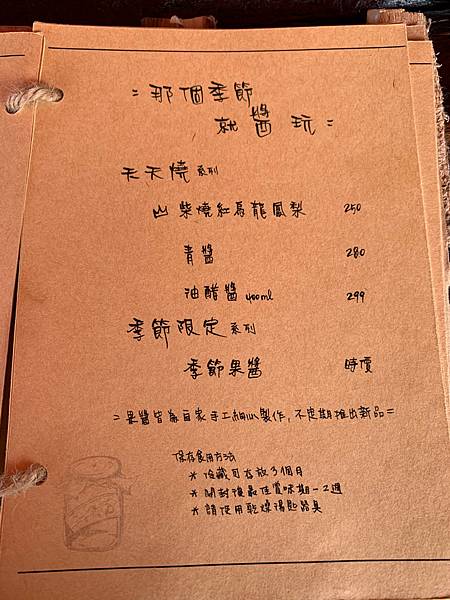 = 那個季節
就醬玩 =
天天燒 系列
山 柴燒紅烏龍鳳梨 250
青醬 280
油醋醬 400ml 299
季節限定 系列
季節果醬 時價
= 果醬皆為自家手工細心製作,不定期推出新品 =
保存食用方法
* 冷藏可存放3個月
* 開封後最佳賞味期一~2週
* 請使用乾燥湯匙器具